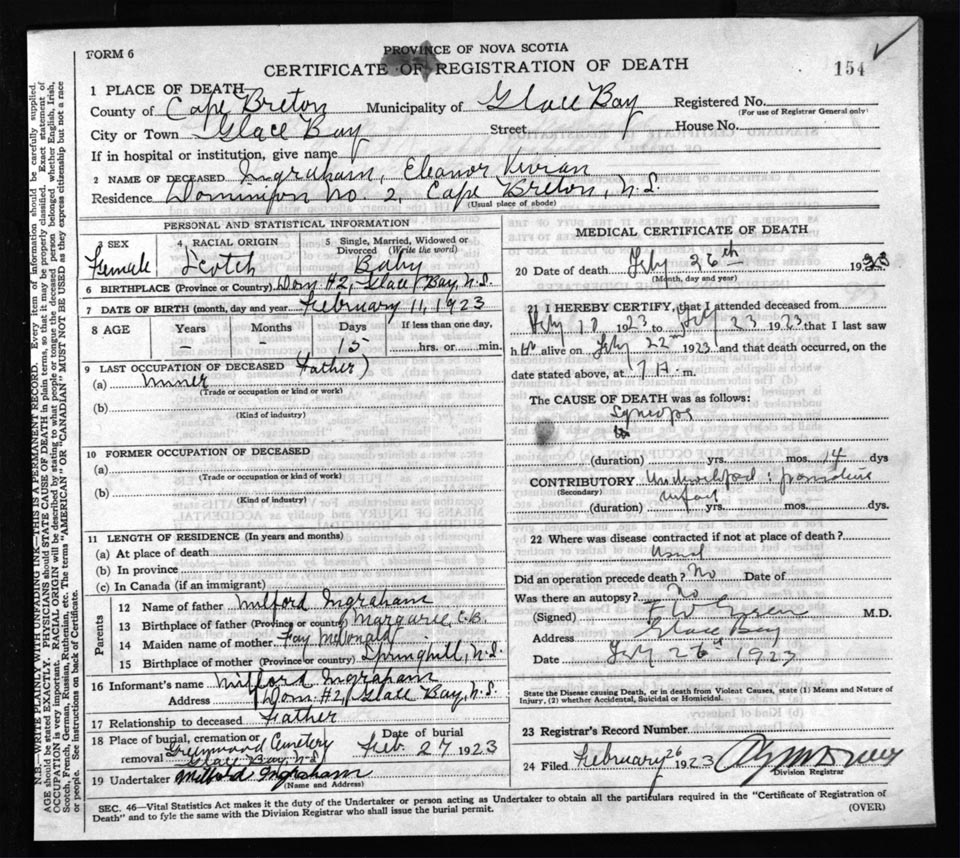 FORM 6
PROVINCE OF NOVA SCOTIA
CERTIFICATE OF REGISTRATION OF DEATH
154
1 PLACE OF DEATH
County of Cape Breton Municipality of Glace Bay Registered No.
(For use of Registrar General only)
City or Town Glace Bay Street House No.
If in hospital or institution, give name
2 NAME OF DECEASED Ingraham, Eleanor Vivian
Residence Dominion No. 2, Cape Breton, N.S.
(Usual place of abode)
PERSONAL AND STATISTICAL INFORMATION
3 SEX
Female
4. RACIAL ORIGIN
Scotch
5 Single, Married, Widowed or Divorced (Write the word)
Baby
6 BIRTHPLACE (Province or Country) Dom #2, Glace Bay, N.S.
7 DATE OF BIRTH (month, day and year) February 11, 1923
8 AGE Years Months Days If less than one day,
- - 15 hrs. or min.
9 LAST OCCUPATION OF DECEASED (Father)
(a) Miner
(Trade or occupation or kind or work)
(b)
(Kind of industry)
10 FORMER OCCUPATION OF DECEASED
(a)
(Trade or occupation or kind of work)
(b)
(Kind of industry)
11 LENGTH OF RESIDENCE (In years and months)
(a) At place of death
(b) In province
(c) In Canada (if an immigrant)
Parents
12 Name of father Milford Ingraham
13 Birthplace of father (Province or country) Margaree, C.B.
14 Maiden name of mother Fay McDonald
15 Birthplace of mother (Province or country) Springhill, N.S.
16 Informant's name Milford Ingraham
Address Dom #2, Glace Bay, N.S.
17 Relationship to deceased Father
18 Place of burial, cremation or removal Greenwood Cemetery
Glace Bay, N.S.
Date of burial
Feb. 27 1923
19 Undertaker Milford Ingraham
(Name and Address)
MEDICAL CERTIFICATE OF DEATH
20 Date of death Feby 26th 1923
(Month, day and year)
21 I HEREBY CERTIFY, that I attended deceased from
Feby 1923 to Feby 23 1923 that I last saw
h alive on Feby 22nd 1923 and that death occurred, on the
date stated above, at 7 A. m.
The CAUSE OF DEATH was as follows:
Syncope
(duration) yrs. mos. 14 dys
CONTRIBUTORY
(Secondary) infant
(duration) yrs. mos. dys.
22 Where was disease contracted if not at place of death?
Usual
Did an operation precede death? No Date of
Was there an autopsy? No
(Signed) M.D.
Address Glace Bay
Date Feby 26 1923
State the Disease causing Death, or in death from Violent Causes, state (1) Means and Nature of
Injury, (2) whether Accidental, Suicidal or Homicidal.
23 Registrar's Record Number
24 Filed February 26 1923
Division Registrar
SEC. 46—Vital Statistics Act makes it the duty of the Undertaker or person acting as Undertaker to obtain all the particulars required in the "Certificate of Registration of
Death" and to fyle the same with the Division Registrar who shall issue the burial permit.
(OVER)
N.B.—WRITE PLAINLY WITH UNFADING INK—THIS IS A PERMANENT RECORD. Every item of information should be carefully supplied.
AGE should be stated EXACTLY. PHYSICIANS should STATE CAUSE OF DEATH in plain terms, so that it may be properly classified. Exact statement of
OCCUPATION is very important. RACIAL ORIGIN will be described by stating to what people or tongue the deceased person belonged whether English, Irish,
Scotch, French, German, Russian, Ruthenian, etc. The terms "AMERICAN" OR "CANADIAN" MUST NOT BE USED as they express citizenship but not a race
or people. See instructions on back of Certificate.